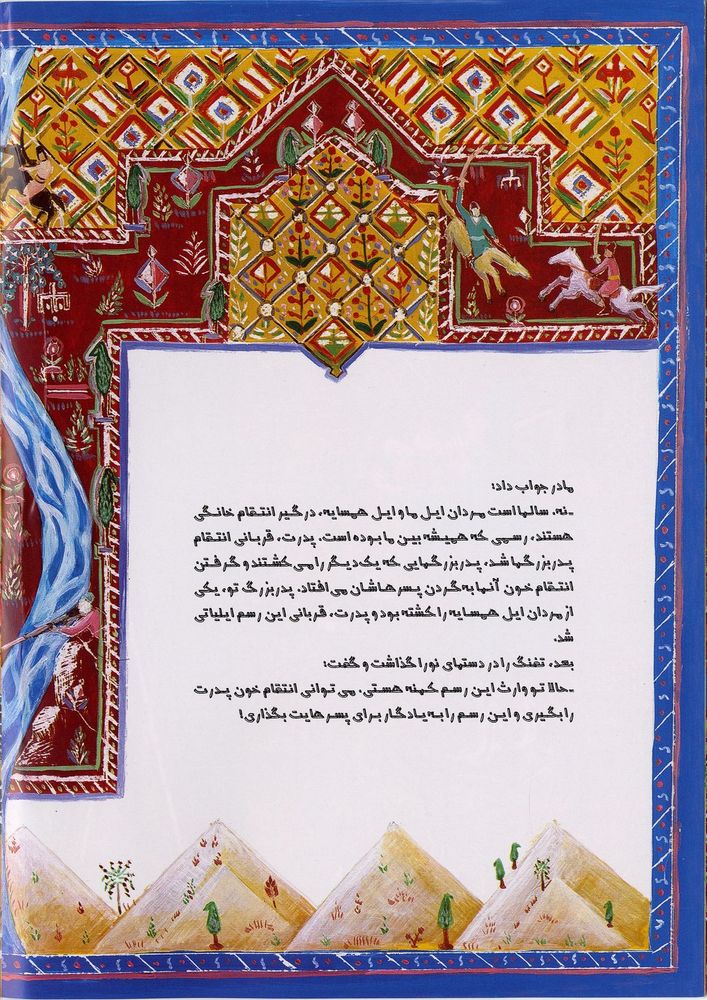 مادر جواب داد:
ـ نه. سالها است مردان ایل ما و ایل همسایه، درگیر انتقام خانگی
هستند، رسمی که همیشه بین ما بوده است. پدرت، قربانی انتقام
پدربزرگها شد، پدربزرگهایی که یکدیگر را می‌کشتند و گرفتن
انتقام خون آنها به گردن پسرهاشان می‌افتاد. پدربزرگ تو، یکی
از مردان ایل همسایه را کشته بود و پدرت، قربانی این رسم ایلیاتی
شد.
بعد، تفنگ را در دستهای نورا گذاشت و گفت:
ـ حالا تو وارث این رسم کهنه هستی، می‌توانی انتقام خون پدرت
را بگیری و این رسم را به یادگار برای پسرهایت بگذاری!